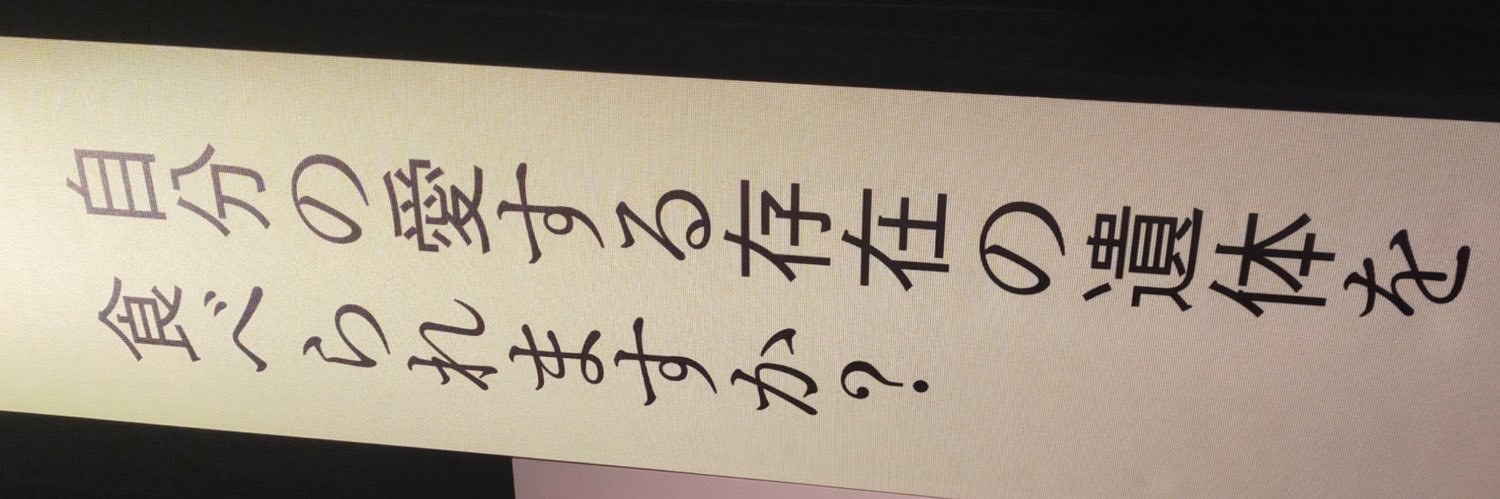 自分の愛する存在の遺体を
食べられますか？